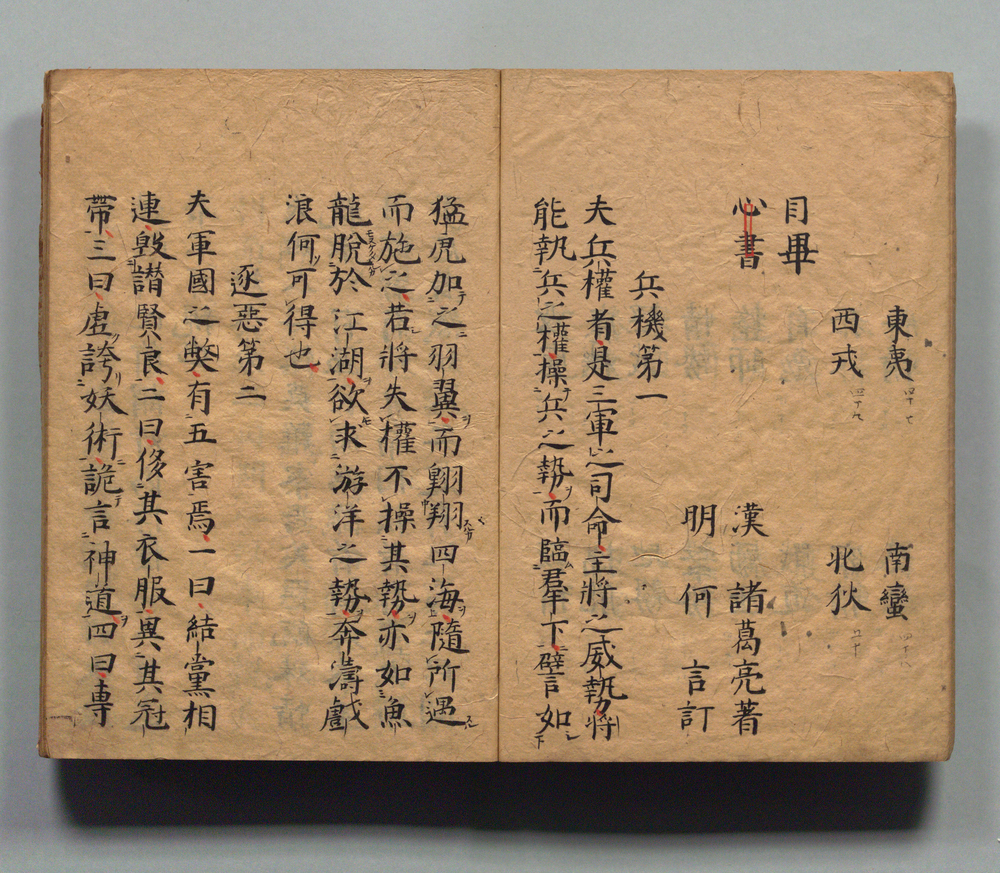 東夷 四十七 南蠻 四十八
西戎 四十九 北狄 五十
目畢
心書 漢 諸葛亮著
明 何 言訂
兵機第一
夫兵權者是三軍之司命主將之威勢將
能執兵之權操兵之勢而臨羣下譬如
猛虎加之羽翼而翱翔四海隨所遇
而施之若將失權不操其勢亦如魚
龍脫於江湖欲求游洋之勢奔濤戲
浪何可得也
逐惡第二
夫軍國之弊有五害焉一曰結黨相
連毀譖賢良二曰侈其衣服異其冠
帶三曰虛誇妖術詭言神道四曰專